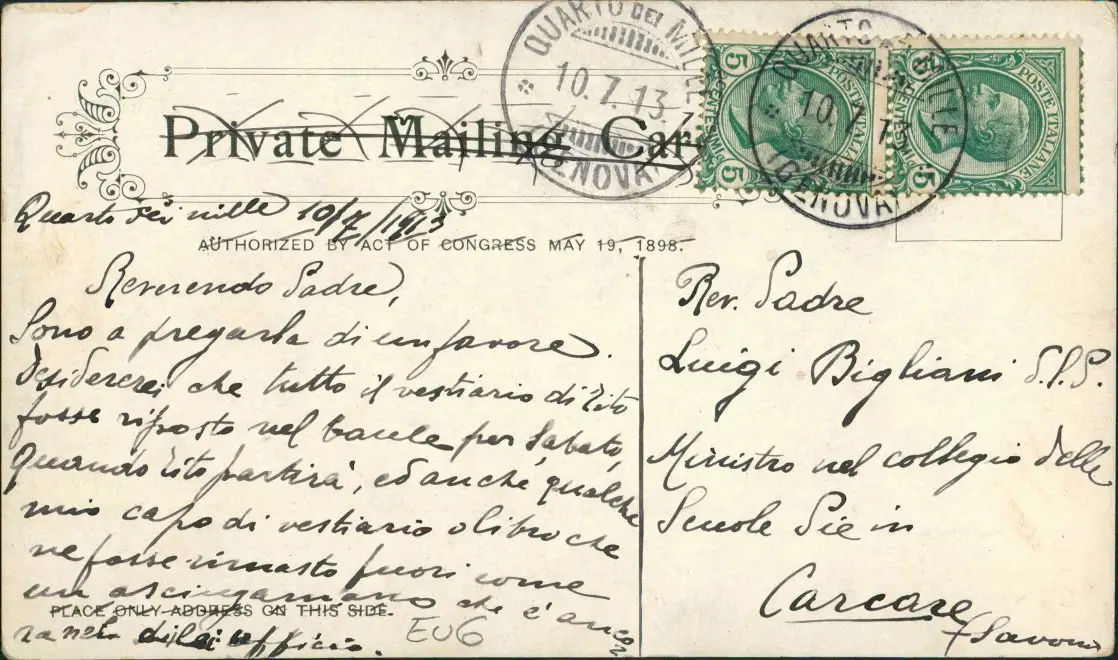 Private Mailing Car
QUARTO DEI MILLE
10.7.13.
GENOVA
QUARTO DEI MILLE
10.7.13
GENOVA
5 CENTESIMI 5 POSTE ITALIANE
5 CENTESIMI 5 POSTE ITALIANE
Quarto dei mille 10/7/1913
AUTHORIZED BY ACT OF CONGRESS MAY 19, 1898.
Reverendo Padre,
Sono a pregarla di un favore.
Desidererei che tutto il vestiario di Tito
fosse riposto nel baule per Sabato,
quando Tito partirà, ed anche qualche
mio capo di vestiario o libro che
ne fosse rimasto fuori come
un asciugamano che c'è anco
ra nel di lei ufficio.
PLACE ONLY ADDRESS ON THIS SIDE.
EU6
Rev. Padre
Luigi Bigliani S.P.
Ministro nel collegio delle
Scuole Pie in
Carcare
(Savona